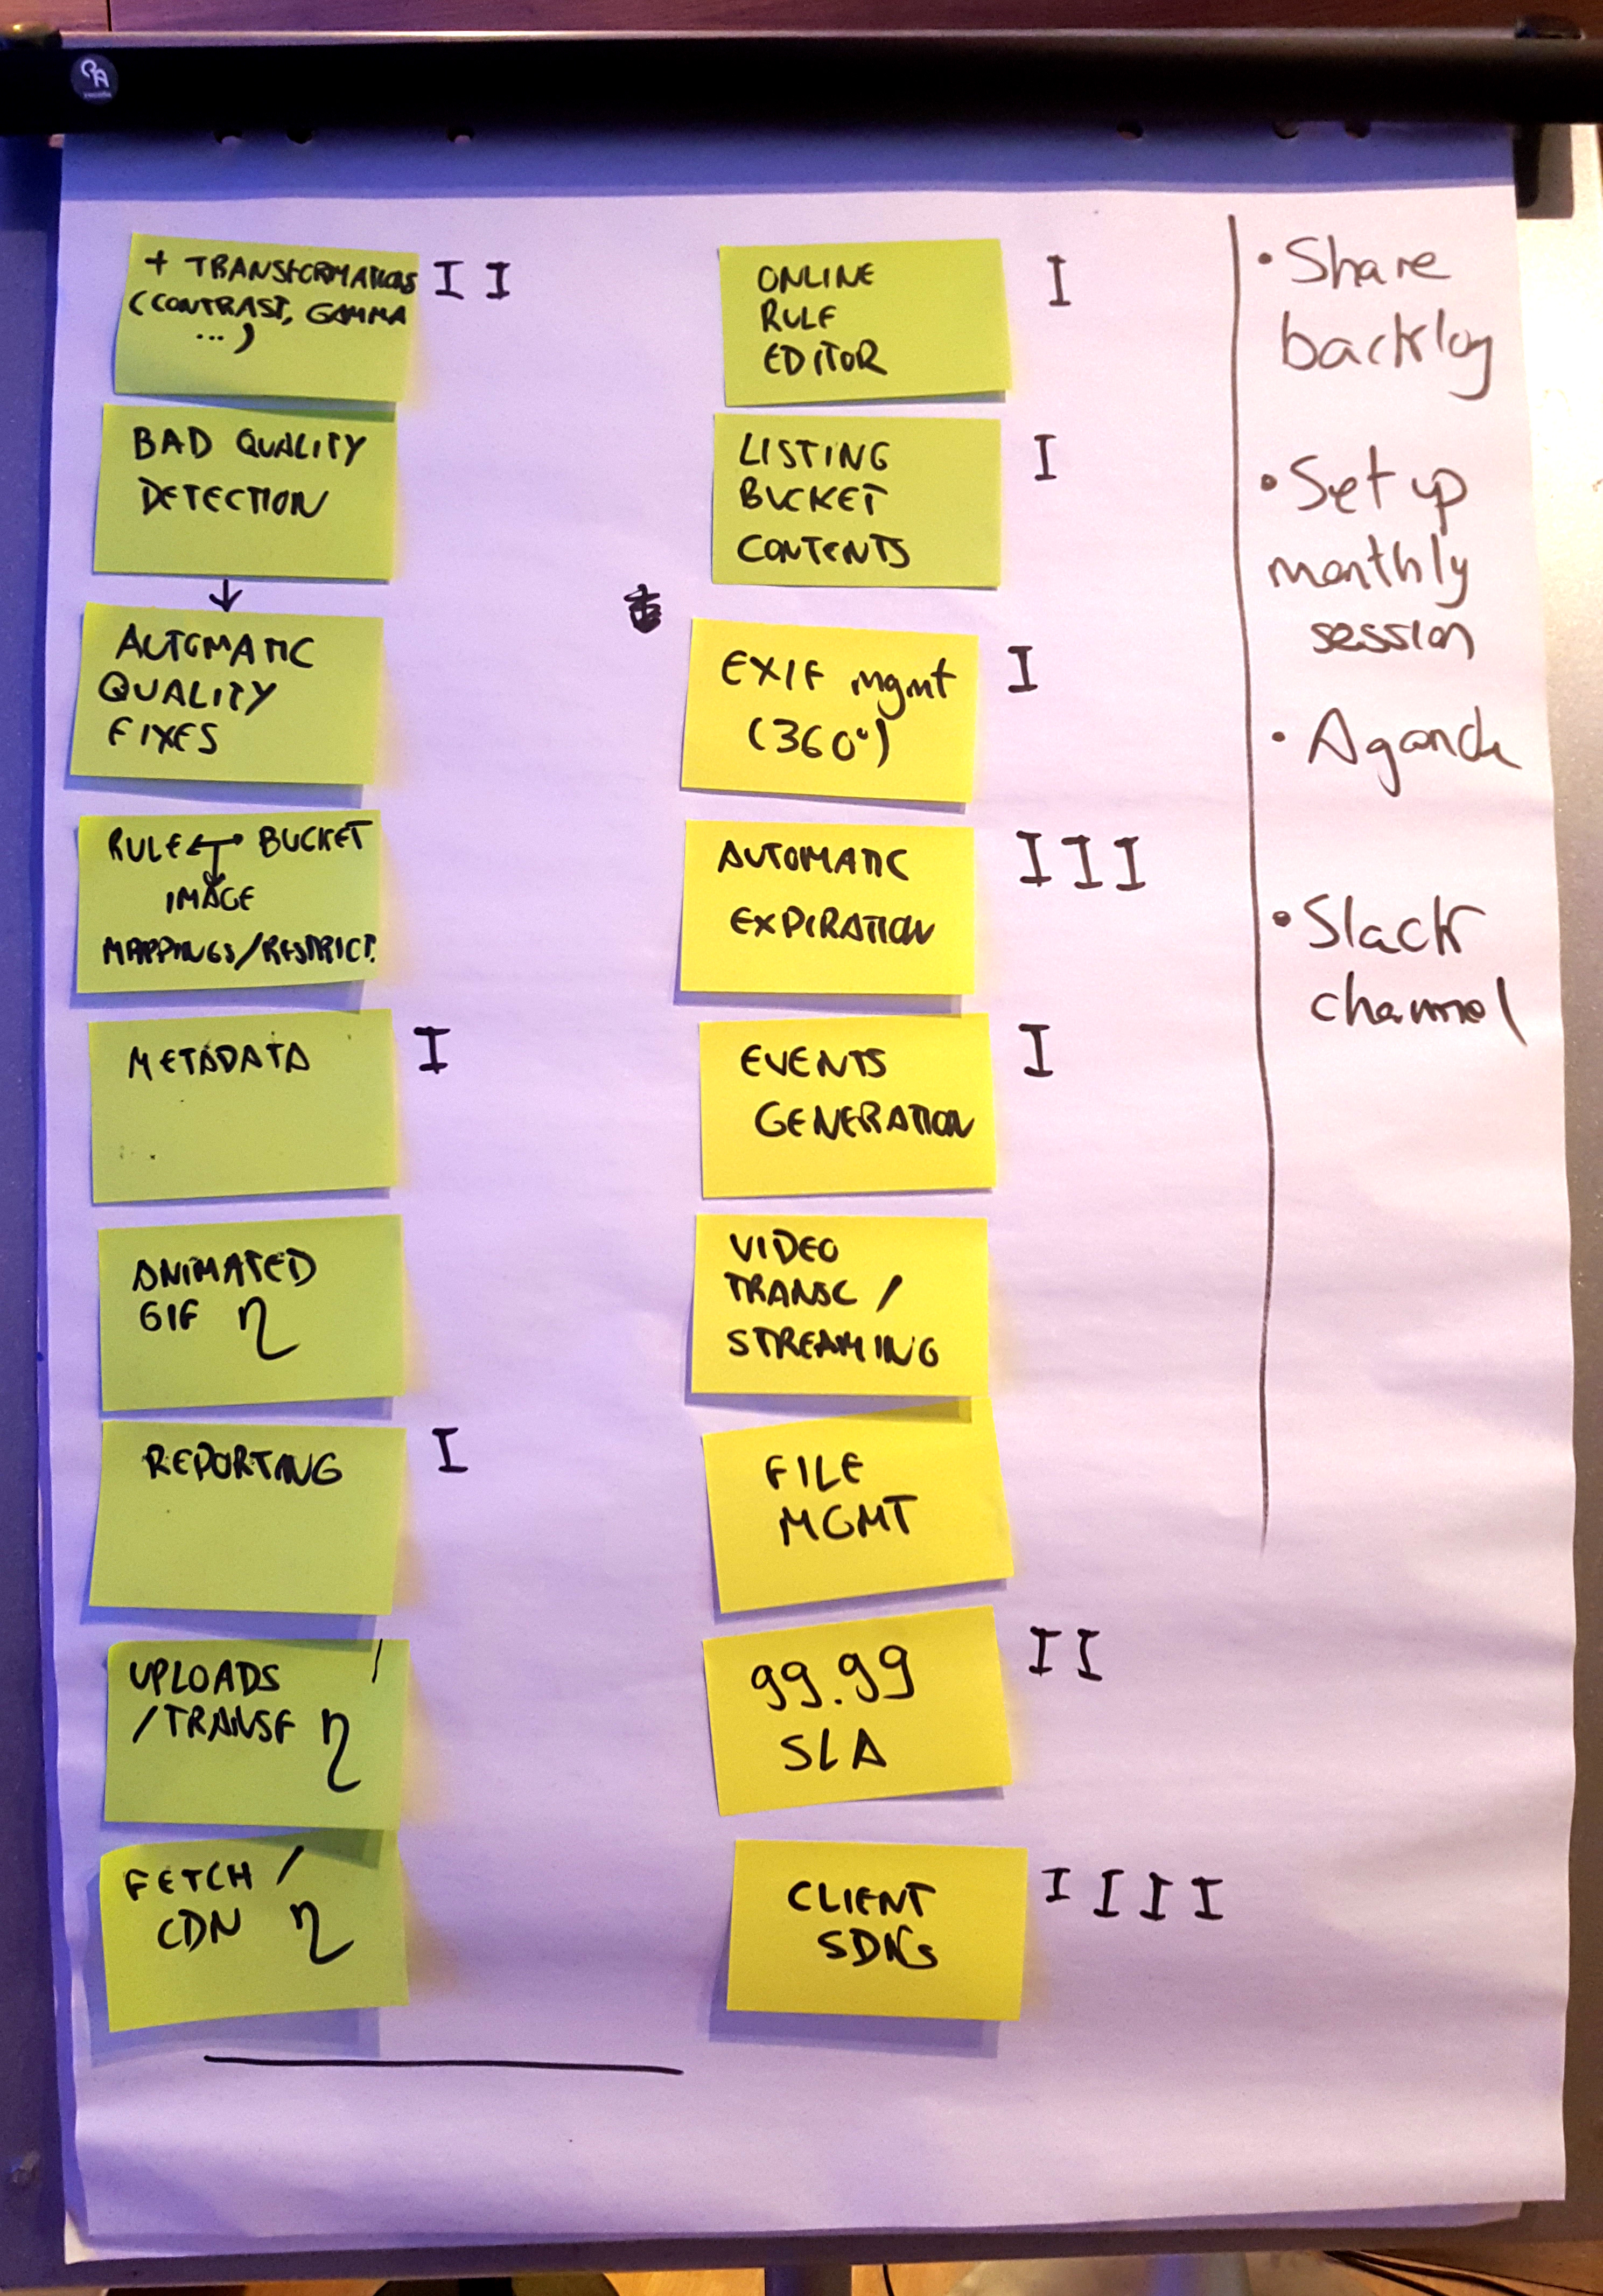 + TRANSFORMATIONS
(CONTRAST, GAMMA
...)
II
BAD QUALITY
DETECTION
↓
AUTOMATIC
QUALITY
FIXES
RULE ↔ BUCKET
IMAGE
MAPPINGS/RESTRICT.
METADATA
I
ANIMATED
GIF η
REPORTING
I
UPLOADS
/TRANSF η
FETCH /
CDN η
ONLINE
RULE
EDITOR
I
LISTING
BUCKET
CONTENTS
I
EXIF mgmt
(360°)
I
AUTOMATIC
EXPIRATION
III
EVENTS
GENERATION
I
VIDEO
TRANSC /
STREAMING
FILE
MGMT
99.99
SLA
II
CLIENT
SDKs
IIII
• Share
backlog
• Set up
monthly
session
• Aganda
• Slack
channel